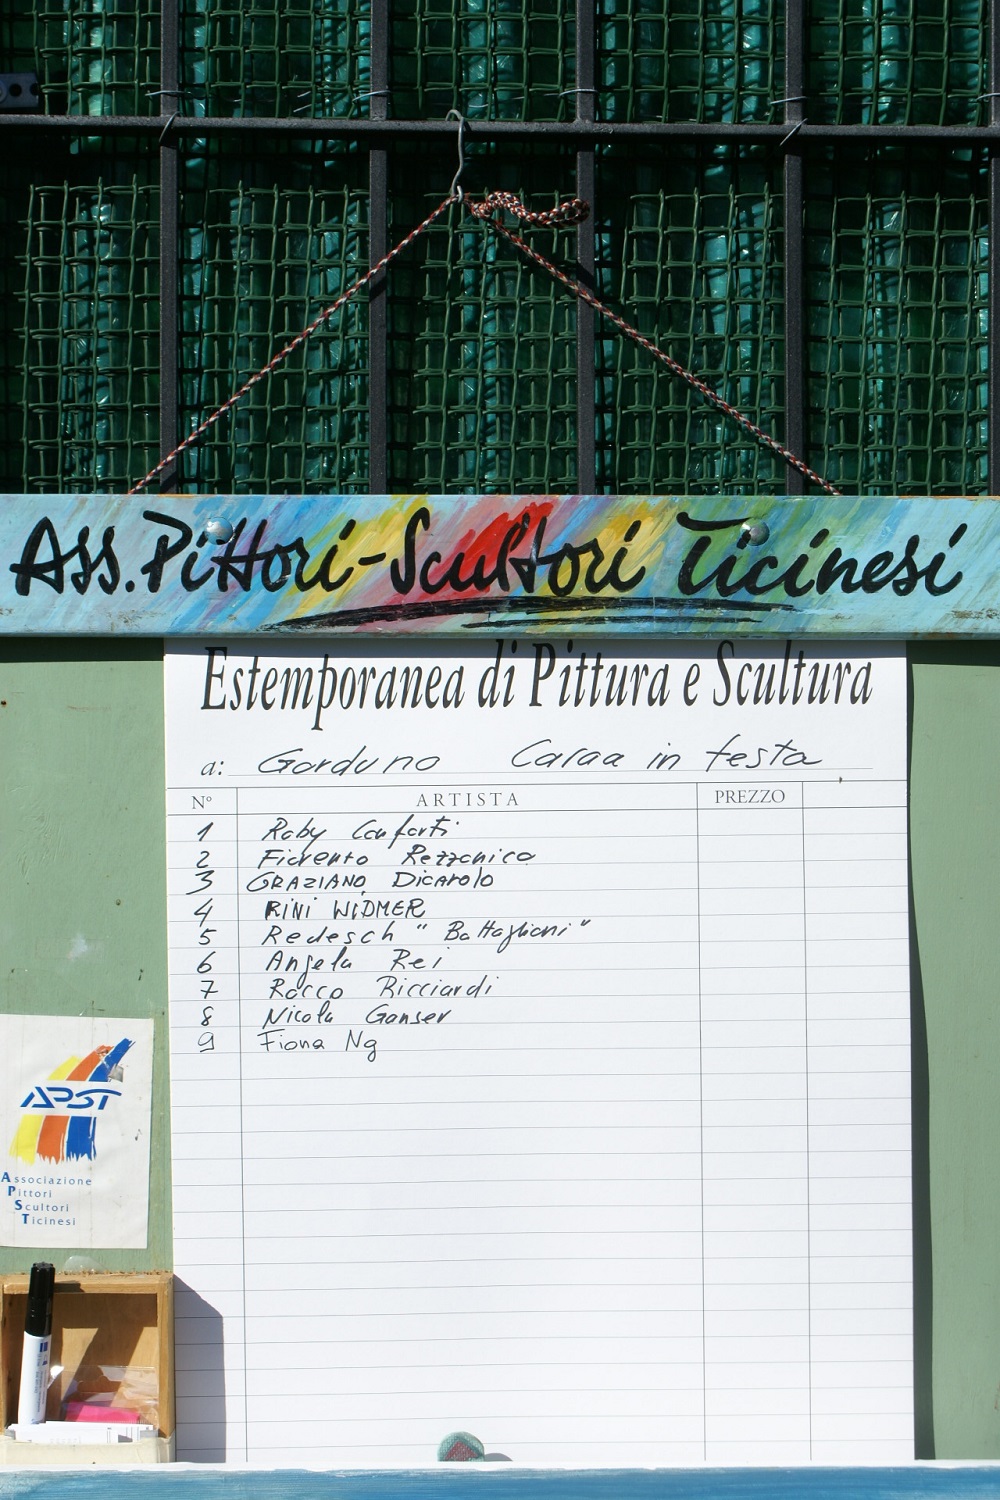 Ass. Pittori-Scultori Ticinesi
Estemporanea di Pittura e Scultura
a: Gorduno Caraa in festa
N° ARTISTA PREZZO
1 Roby Conforti
2 Fiorento Rezzonico
3 GRAZIANO DICAROLO
4 RINI WIDMER
5 Redesch "Battaglioni"
6 Angela Rei
7 Rocco Ricciardi
8 Nicola Ganser
9 Fiona Ng
APST
Associazione
Pittori
Scultori
Ticinesi